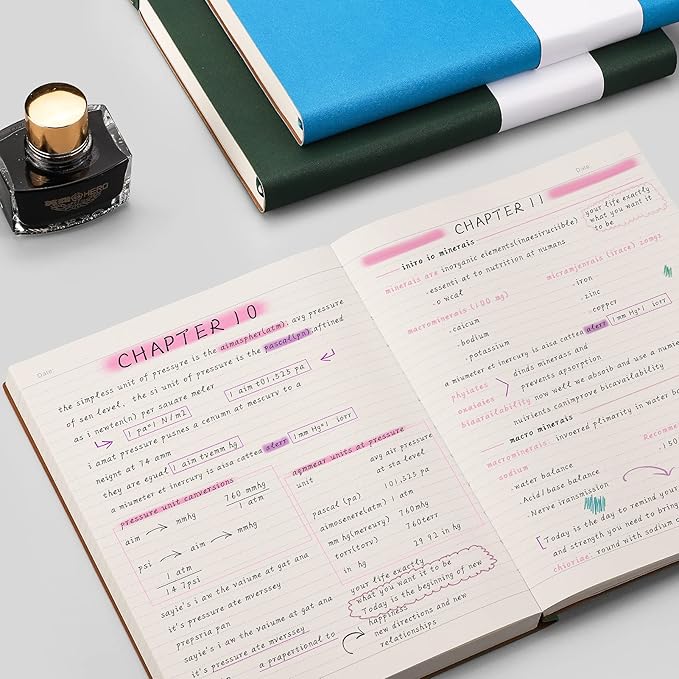 HERO
Date:
CHAPTER 10
the simpless unit of pressyre is the aimaspher(atm); avg pressure
of sen level, the si unit of pressure is the pascal(pn); aftined
as i newten(n) per square meler
1 pa=1 N/m2
1 aim t01,325 pa
i amat pressure pusnes a cenumn at mescurv to a
neignt at 74 amm
they are equal 1 aim tvemm hg
a miumeter et inercury is aisa cattea aterr 1 mm Hg=1 iorr
pressure unit canversions
aim → mmhg
760 mmhg
1 atm
psi → aim → mmhg
1 atm
14.7psi
agmmear units at pressure
unit
avg air pressure
at sta level
pascal (pa) 101,325 pa
aimosenere(atm) 1 atm
mm hg(mereury) 760mmhg
torr(torv) 760terr
in hg 29.92 in hg
sayie's i aw the vaiume at gat ana
it's pressure ate mverssey
prepsria pan
sayie's i aw the vaiume at gat ana
it's pressure at mverssey
a prapertional to
your life exactly
what you want it to be
Today is the beginning of new
happiness
new directions and new
relationships
Date:
CHAPTER 11
your life exactly
what you want it
to be
iniro io minerais
minerais are inorganic elements(inaesiruciible)
.essenti at to nutrition at numans
.o wcal
macrominerais (100 mg)
.caicum
.bodium
.potassium
micramjenrais (irace) 20mgz
.iron
.zinc
.copper
a miumeter et inercury is aisa cattea aterr 1 mm Hg=1 iorr
phyjates
oxaiaies
dinds minerass and
prevents apsorption
biaavailability now well we absoib and use a nume
nuirients canimprove bicavailability
macro minerais
macrominerais. invoered plimarity in water b
sodium
Recomme
.150
water balance
.Acid/base balance
.Nerve Transmission
Today is the day to remind your
and strength you need to bring
chioriae: round with sodium